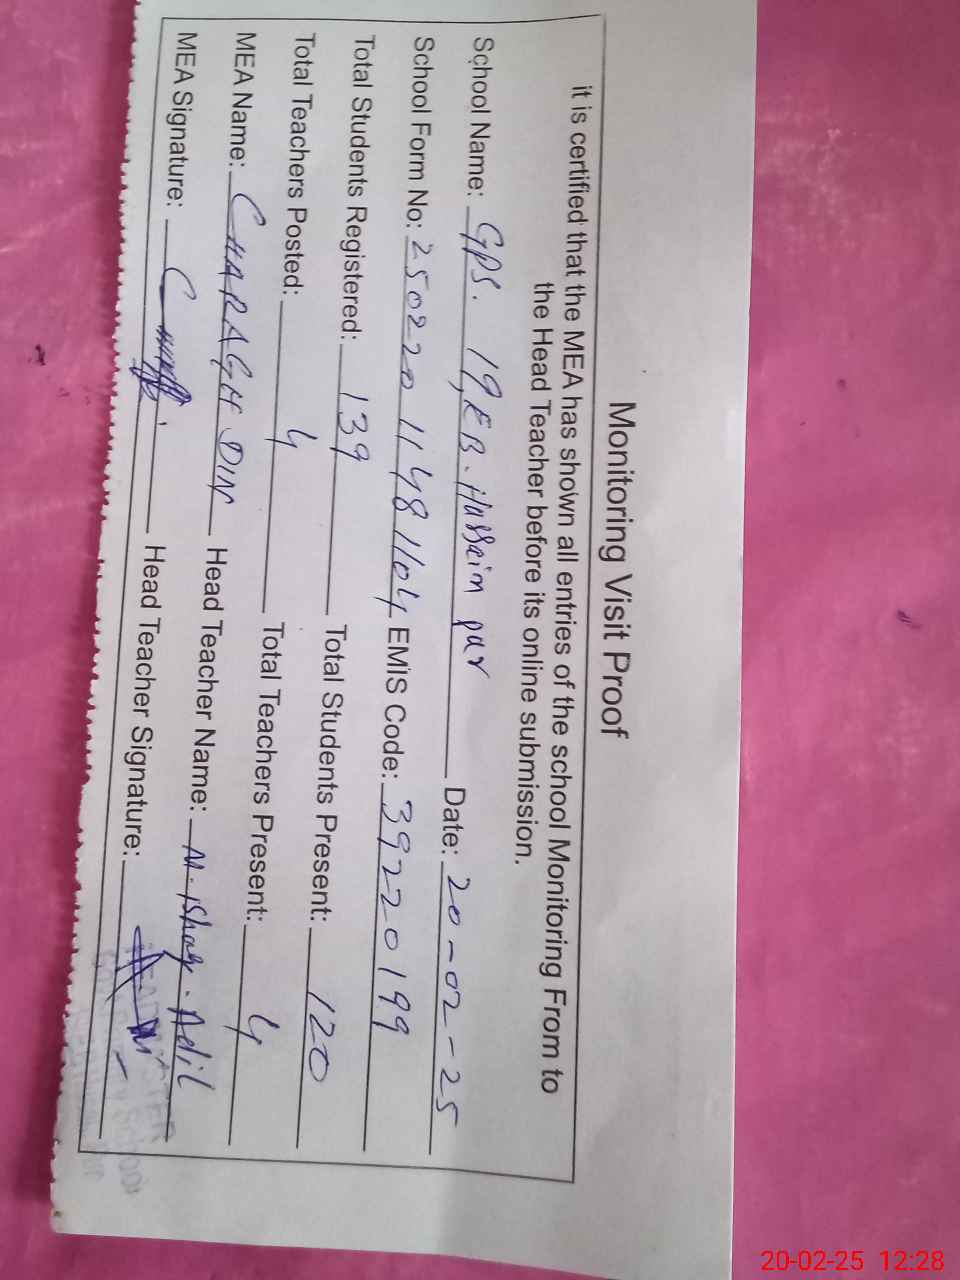 Monitoring Visit Proof
it is certified that the MEA has shown all entries of the school Monitoring From to
the Head Teacher before its online submission.
School Name: GPS. 19,EB. Hussein pur Date: 20-02-25
School Form No: 2502201148 1104 EMiS Code: 39220199
Total Students Registered: 139 Total Students Present: 120
Total Teachers Posted: 4 Total Teachers Present: 4
MEA Name: CHARAGH DIN Head Teacher Name: M. ishaq. Adil
MEA Signature: Head Teacher Signature:
20-02-25 12:28